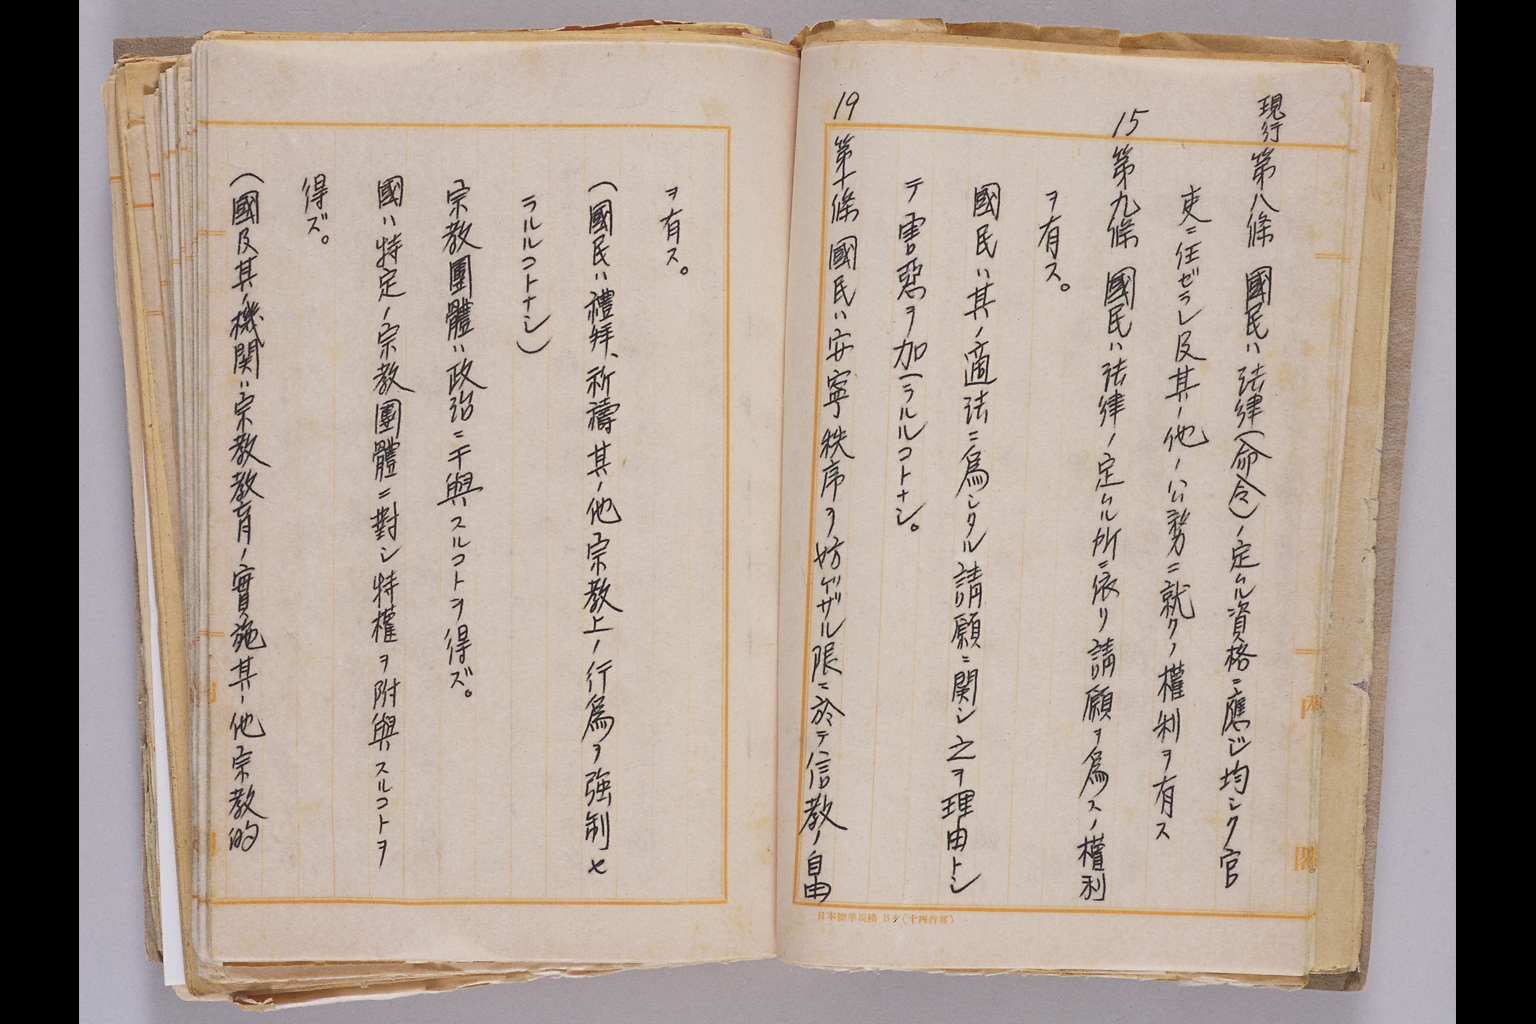 現行 第八條 國民ハ法律(命令)ノ定ムル資格ニ應ジ均シク官
吏ニ任ゼラレ及其ノ他ノ公務ニ就クノ權利ヲ有ス
15 第九條 國民ハ法律ノ定ムル所ニ依リ請願ヲ爲スノ權利
ヲ有ス。
國民ハ其ノ適法ニ爲シタル請願ニ関シ之ヲ理由トシ
テ害惡ヲ加ヘラルルコトナシ。
19 第十條 國民ハ安寧秩序ヲ妨ゲザル限ニ於テ信教ノ自由
日本標準規格 B5(十四行罫)
内閣
ヲ有ス。
(國民ハ禮拜、祈禱其ノ他宗教上ノ行爲ヲ強制セ
ラルルコトナシ)
宗教團體ハ政治ニ干與スルコトヲ得ズ。
國ハ特定ノ宗教團體ニ對シ特權ヲ附與スルコトヲ
得ズ。
(國及其ノ機関ハ宗教教育ノ實施其ノ他宗教的